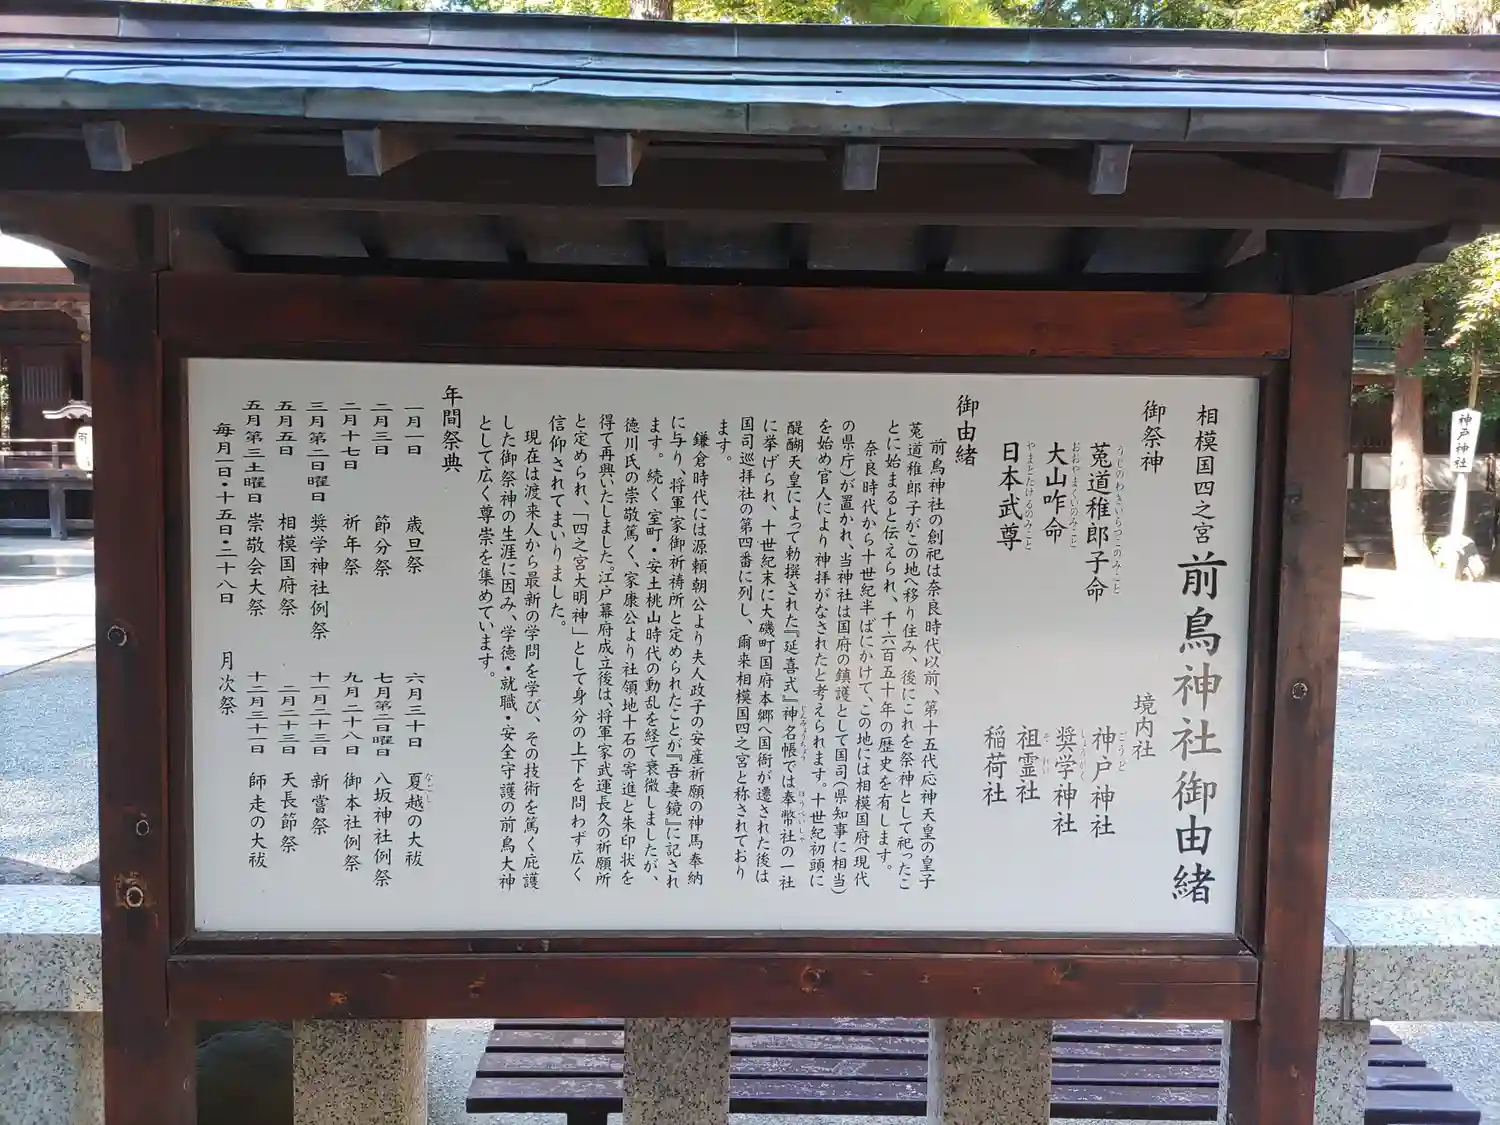 相模国四之宮 前鳥神社御由緒
御祭神
菟道稚郎子命
うじのわきいらつこのみこと
大山咋命
おおやまくいのみこと
日本武尊
やまとたけるのみこと
境内社
神戸神社
ごうど
奨学神社
しょうがく
祖霊社
それい
稲荷社
御由緒
前鳥神社の創祀は奈良時代以前、第十五代応神天皇の皇子
菟道稚郎子がこの地へ移り住み、後にこれを祭神として祀ったこ
とに始まると伝えられ、千六百五十年の歴史を有します。
奈良時代から十世紀半ばにかけて、この地には相模国府(現代
の県庁)が置かれ、当神社は国府の鎮護として国司(県知事に相当)
を始め官人により神拝がなされたと考えられます。十世紀初頭に
醍醐天皇によって勅撰された『延喜式』神名帳では奉幣社の一社
じんみょうちょう
ほうへいしゃ
に挙げられ、十世紀末に大磯町国府本郷へ国衙が遷された後は
国司巡拝社の第四番に列し、爾来相模国四之宮と称されており
ます。
鎌倉時代には源頼朝公より夫人政子の安産祈願の神馬奉納
に与り、将軍家御祈祷所と定められたことが『吾妻鏡』に記され
ます。続く室町・安土桃山時代の動乱を経て衰微しましたが、
徳川氏の崇敬篤く、家康公より社領地十石の寄進と朱印状を
得て再興いたしました。江戸幕府成立後は、将軍家武運長久の祈願所
と定められ、「四之宮大明神」として身分の上下を問わず広く
信仰されてまいりました。
現在は渡来人から最新の学問を学び、その技術を篤く庇護
した御祭神の生涯に因み、学徳・就職・安全守護の前鳥大神
として広く尊崇を集めています。
年間祭典
一月一日 歳旦祭
二月三日 節分祭
二月十七日 祈年祭
三月第二日曜日 奨学神社例祭
五月五日 相模国府祭
五月第三土曜日 崇敬会大祭
毎月一日・十五日・二十八日 月次祭
六月三十日 夏越の大祓
なごし
七月第二日曜日 八坂神社例祭
九月二十八日 御本社例祭
十一月二十三日 新嘗祭
二月二十三日 天長節祭
十二月三十一日 師走の大祓
神戸神社